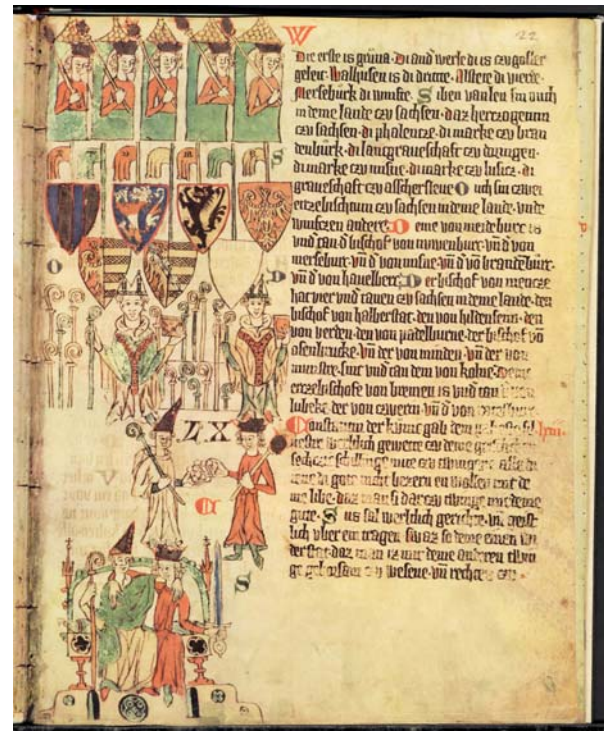 22
W
Die erste is grüna · Di and' werle di is czu goslar
geleit · Walhusen is di dritte · Alstete di vierde ·
Mersebürk di vumfte · Siben van len sin ouch
in deme lande czu sachsen · daz herczogetum
czu sachsen · di phalencze · di marke czu bran
denbürk · di lantgraueschaft czu duringen ·
di marke czu misne · di marke czu lusicz · di
graueschaft czu asschersleue Ouch sin czwei
erczebischtum czu sachsen in deme lande · vnde
vumfczen andere · Deme von meideburc is
vnd'tan d' bischof von nuwenburc · vn̄ d' von
merseburc · vn̄ d' von misne · vn̄ d' vō brandēburc ·
vn̄ d' von hauelberc · Der bischof von mencze
hat vier vnd'tanen czu sachsen in deme lande · den
bischof von halberstat · den von hildensem · den
von verden · den von padelburne · der bischof vō
osenbrucke · vn̄ der von minden · vn̄ der von
munstre · sint vnd'tan dem von kolne · Deme
erczebischofe von bremen is vnd'tan
lubeke · der von czwerin · vn̄ d' von
Constantin der küning gab dem
werltlich gewette czu deme
sechczic schillinge mite czu twingene alle di
iene di gote nicht bezzern en wollen mit de
me libe · daz man si dar czu twinge mit deme
gute · Sus sal werltlich gerichte · vn̄ geist
lich vber ein tragen swaz so deme einen wi
derstat · daz man iz mit deme anderen twin
ge gehorsam czu wesene · vn̄ rechtes czu
S
O
D
LX
C
S